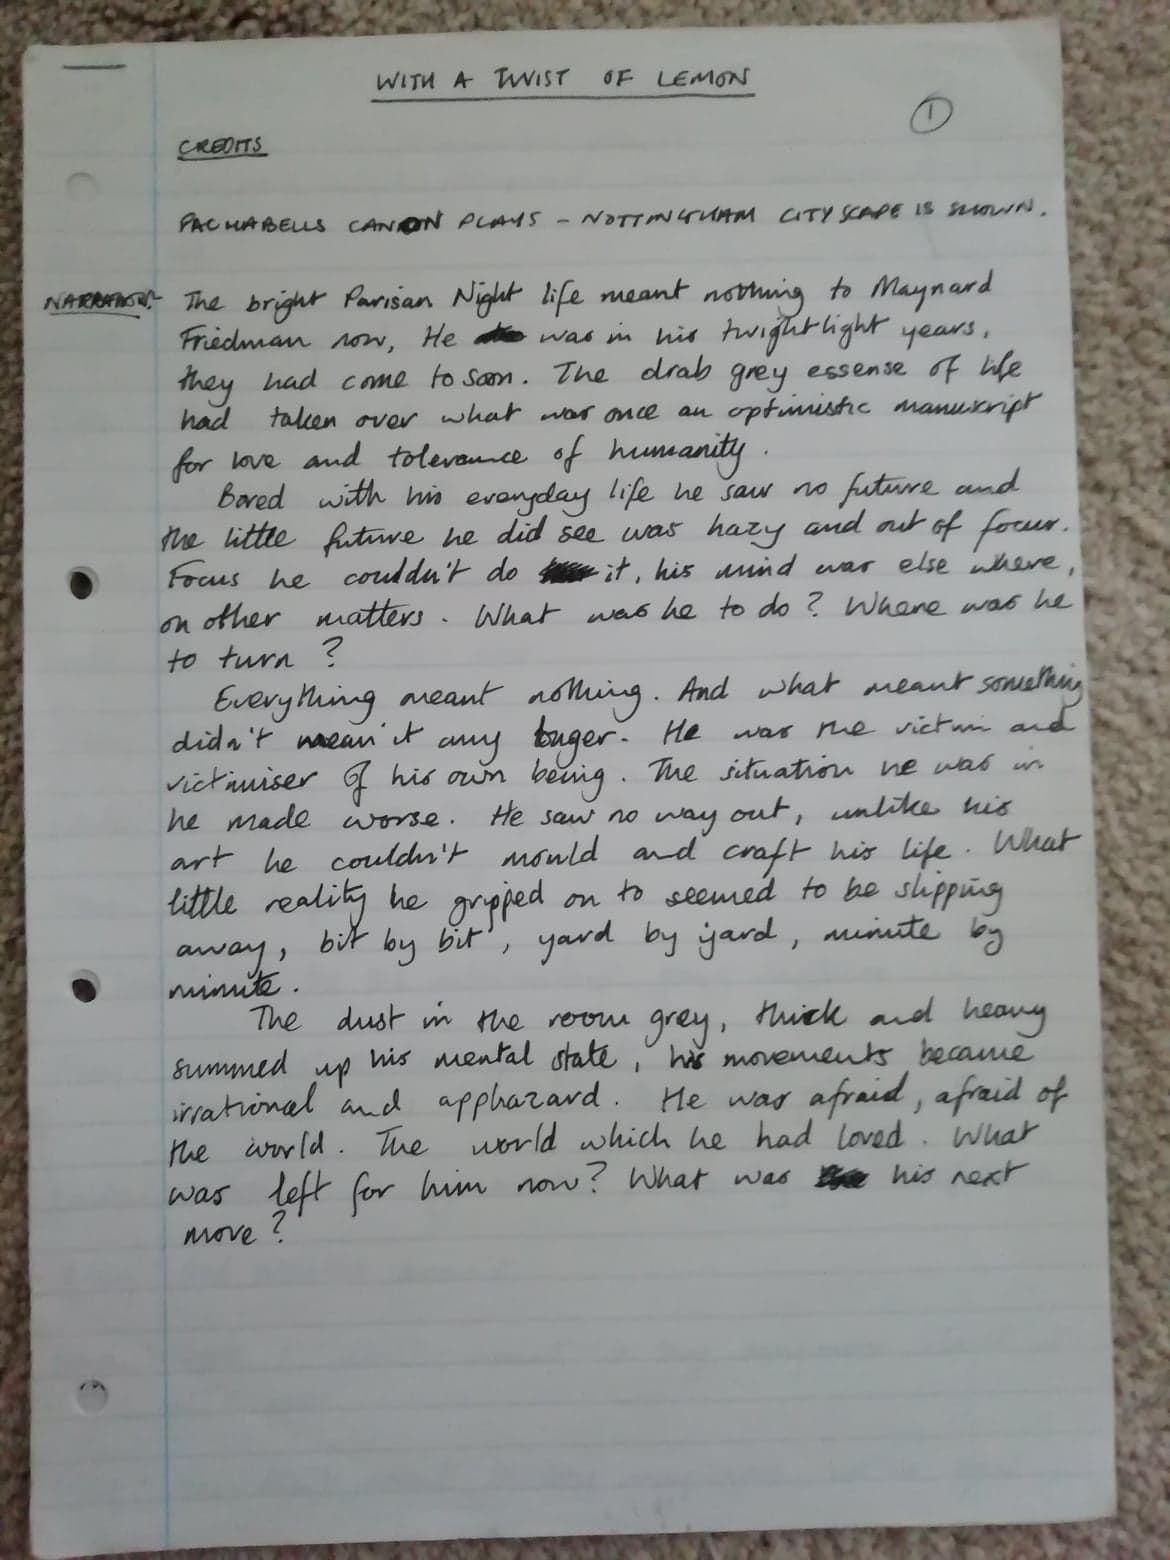 WITH A TWIST OF LEMON
1
CREDITS
PACHABELLS CANON PLAYS – NOTTINGHAM CITYSCAPE IS SHOWN.
NARRATOR:
The bright Parisan Night life meant nothing to Maynard
Friedman now, He was in his twightlight years,
they had come to soon. The drab grey essense of life
had taken over what was once an optimistic manuscript
for love and tolerance of humanity.
Bored with his everyday life he saw no future and
the little future he did see was hazy and out of focus.
Focus he couldn't do it, his mind was else where,
on other matters. What was he to do? Where was he
to turn?
Everything meant nothing. And what meant something
didn't mean it any longer. He was the victim and
victimiser of his own being. The situation he was in
he made worse. He saw no way out, unlike his
art he couldn't mould and craft his life. What
little reality he gripped on to seemed to be slipping
away, bit by bit, yard by yard, minute by
minute.
The dust in the room grey, thick and heavy
summed up his mental state, his movements became
irrational and apphazard. He was afraid, afraid of
the world. The world which he had loved. What
was left for him now? What was his next
move?